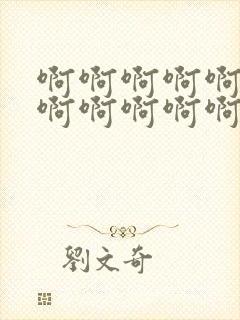 啊啊啊啊啊
啊啊啊啊啊
劉文奇